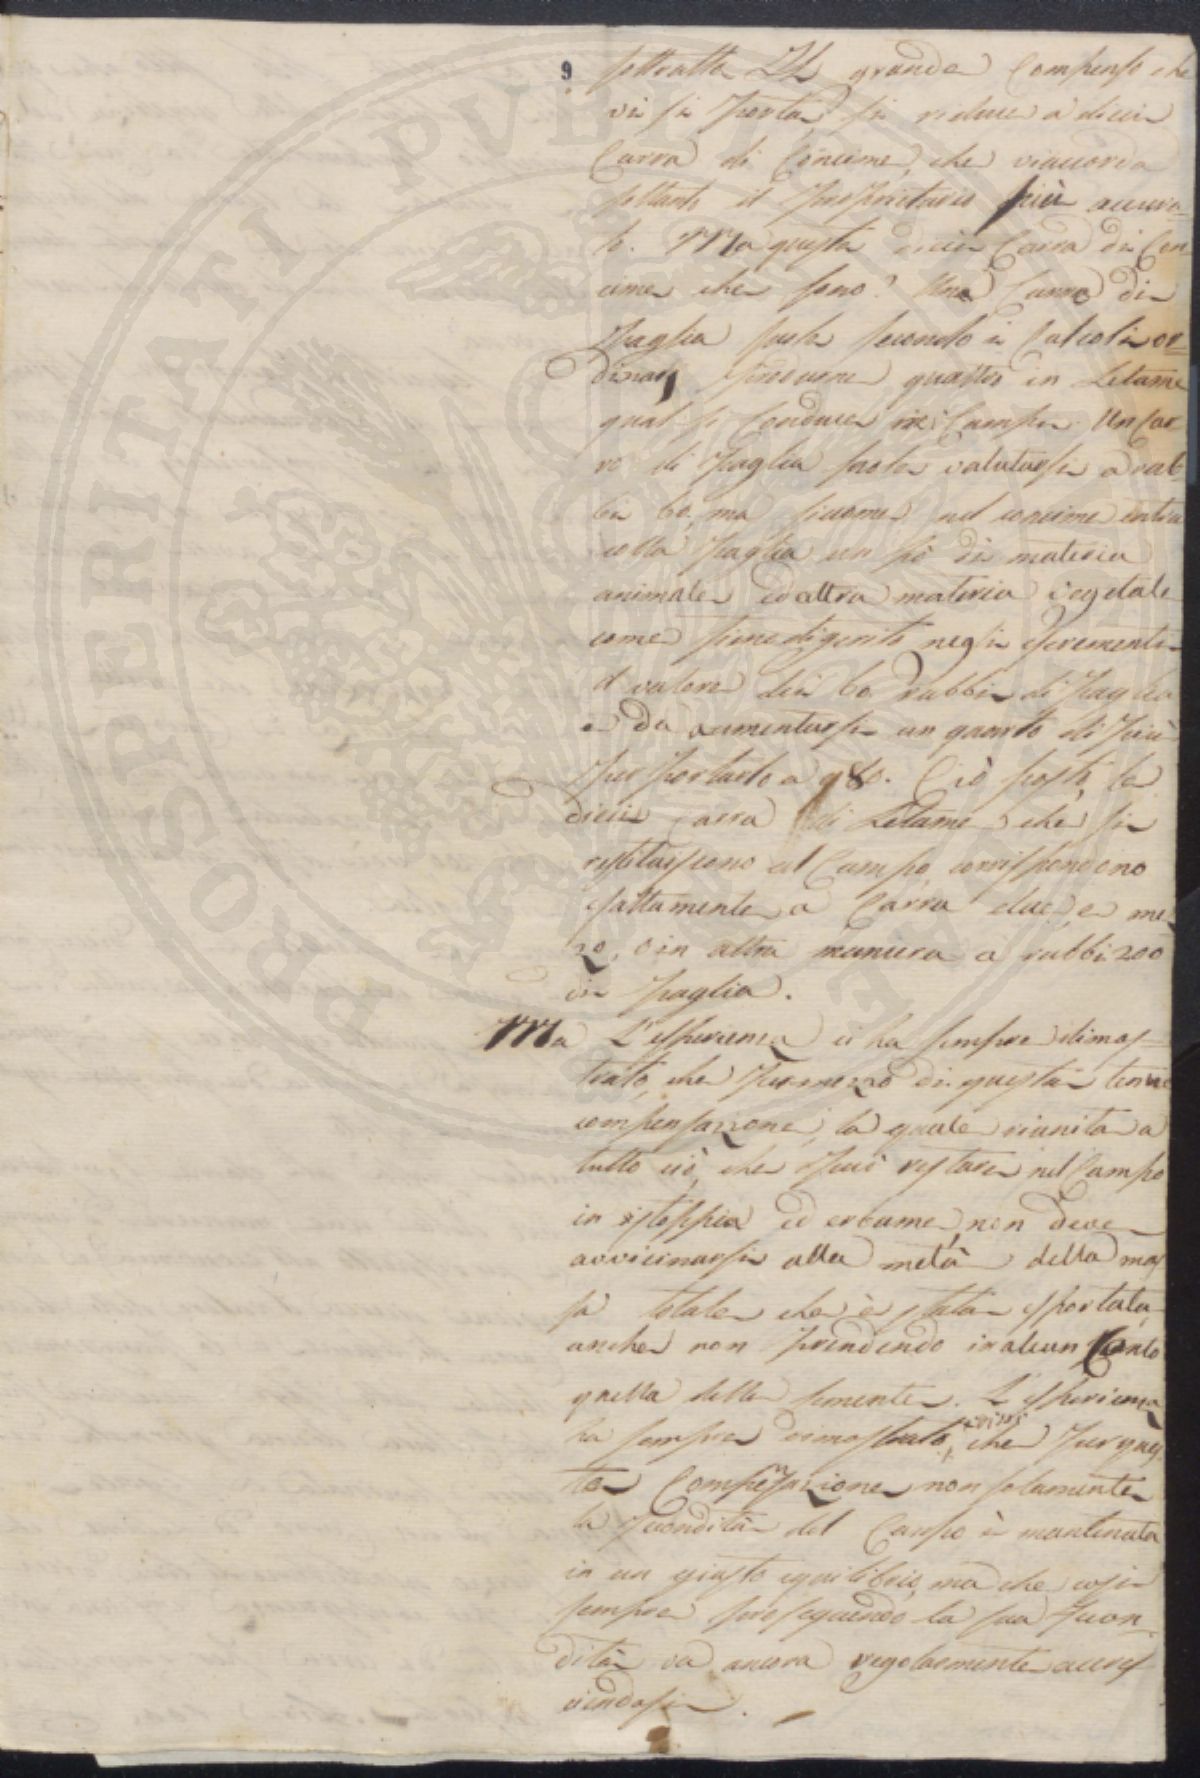 9
sottratta. Il grande Compenso che
vi si porta, si riduce a dieci
Carra di Concime, che vi accorda
soltanto il Proprietario più accura-
to. Ma queste dieci Carra di Con
cime che sono? Una Carra di
Paglia suole secondo i Calcoli or-
dinarj produrne quattro in Letame
qual si Conduce nei Campi. Un Car
ro di Paglia suole valutarsi a rub-
bi 60, ma siccome nel concime entra
colla Paglia un pò di materia
animale ed altra materia vegetale
come fieno digerito negli escrementi
il valore dei 60 rubbi di Paglia
è da aumentarsi un quarto di più
per portarlo a 80. Ciò posto, le
dieci Carra di Letame che si
restituiscono al Campo, corrispondono
esattamente a Carra due, e me
zo, o in altra maniera a rubbi 200
di Paglia.
Ma L'esperienza ci ha sempre dimos-
trato, che per mezzo di questa tenue
compensazione, la quale riunita a
tutto ciò, che può restare nel Campo
in istoppia ed erbame, non deve
avvicinarsi alla metà della mas
sa totale che è stata esportata,
anche non prendendo in alcun Conto
quella delle semente. L'esperienza
ha sempre dimostrato, che per ques
ta Compensazione non solamente
la fecondità del Campo è mantenuta
in un giusto equilibrio, ma che così
sempre proseguendo la sua fecon-
dità va ancora regolarmente accres
cendosi.
PROSPERITATI PVBLICAE